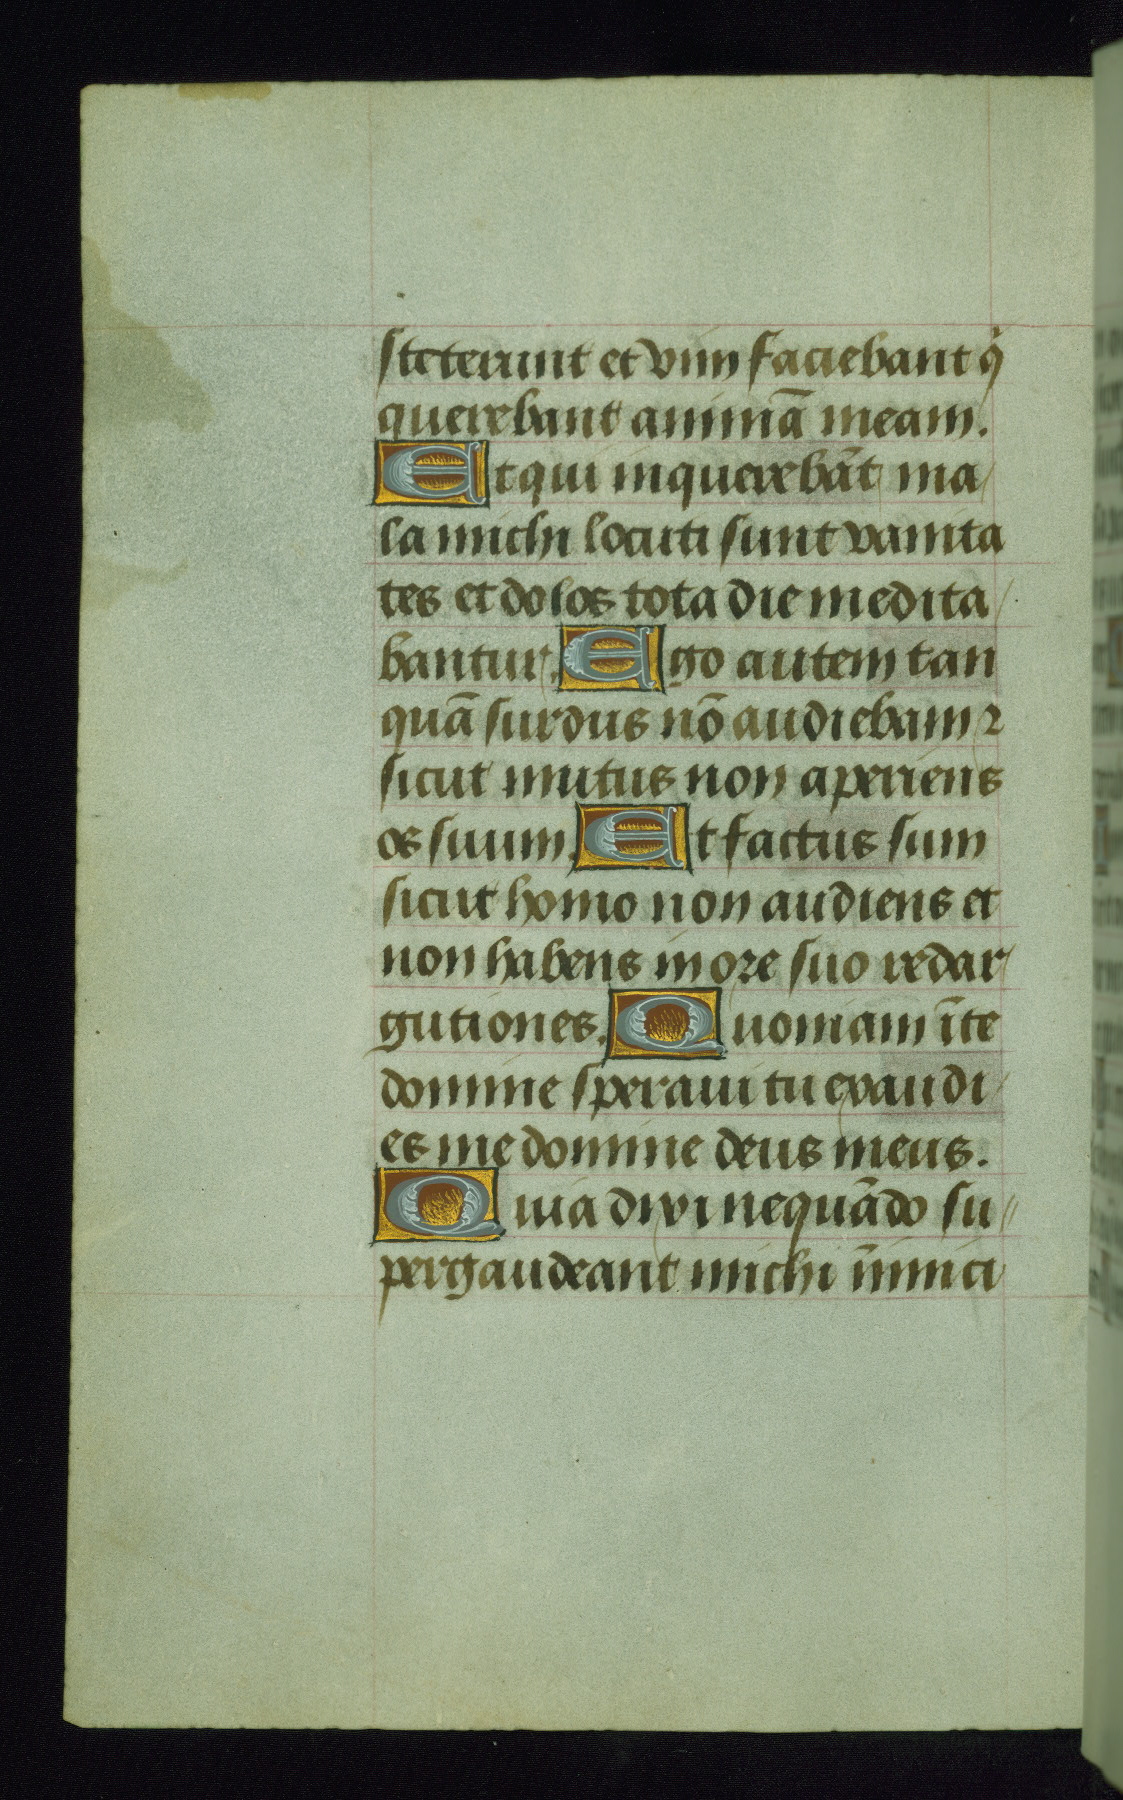 steterunt et vim faciebant qͥ
querebant animā meam.
Et qui inquerebāt ma
la michi locuti sunt vanita
tes et dolos tota die medita
bantur. Ego autem tan
quā surdus nō audiebam ⁊
sicut mutus non aperiens
os suum. Et factus sum
sicut homo non audiens et
non habens in ore suo redar
gutiones. Quoniam ī te
domine speraui tu exaudi
es me domine deus meus.
Quia dixi nequādo su
pergaudeant michi īimici